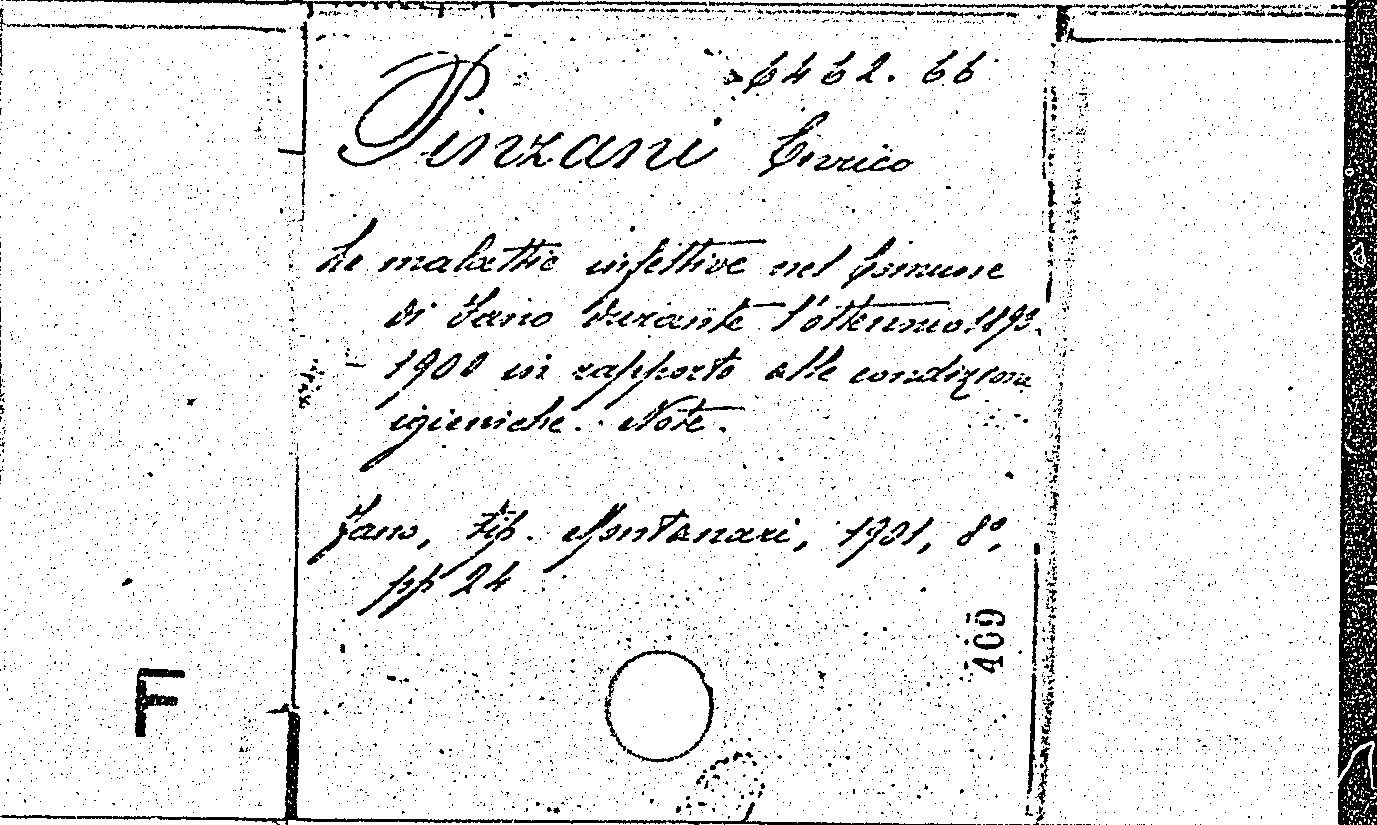 6462.66
Pinzani Enrico
Le malattie infettive nel Comune
di Fano durante l'ottennio 1893-
1900 in rapporto alle condizioni
igieniche. Note.
Fano, tip. Montanari, 1901, 8º,
pp 24
409
F